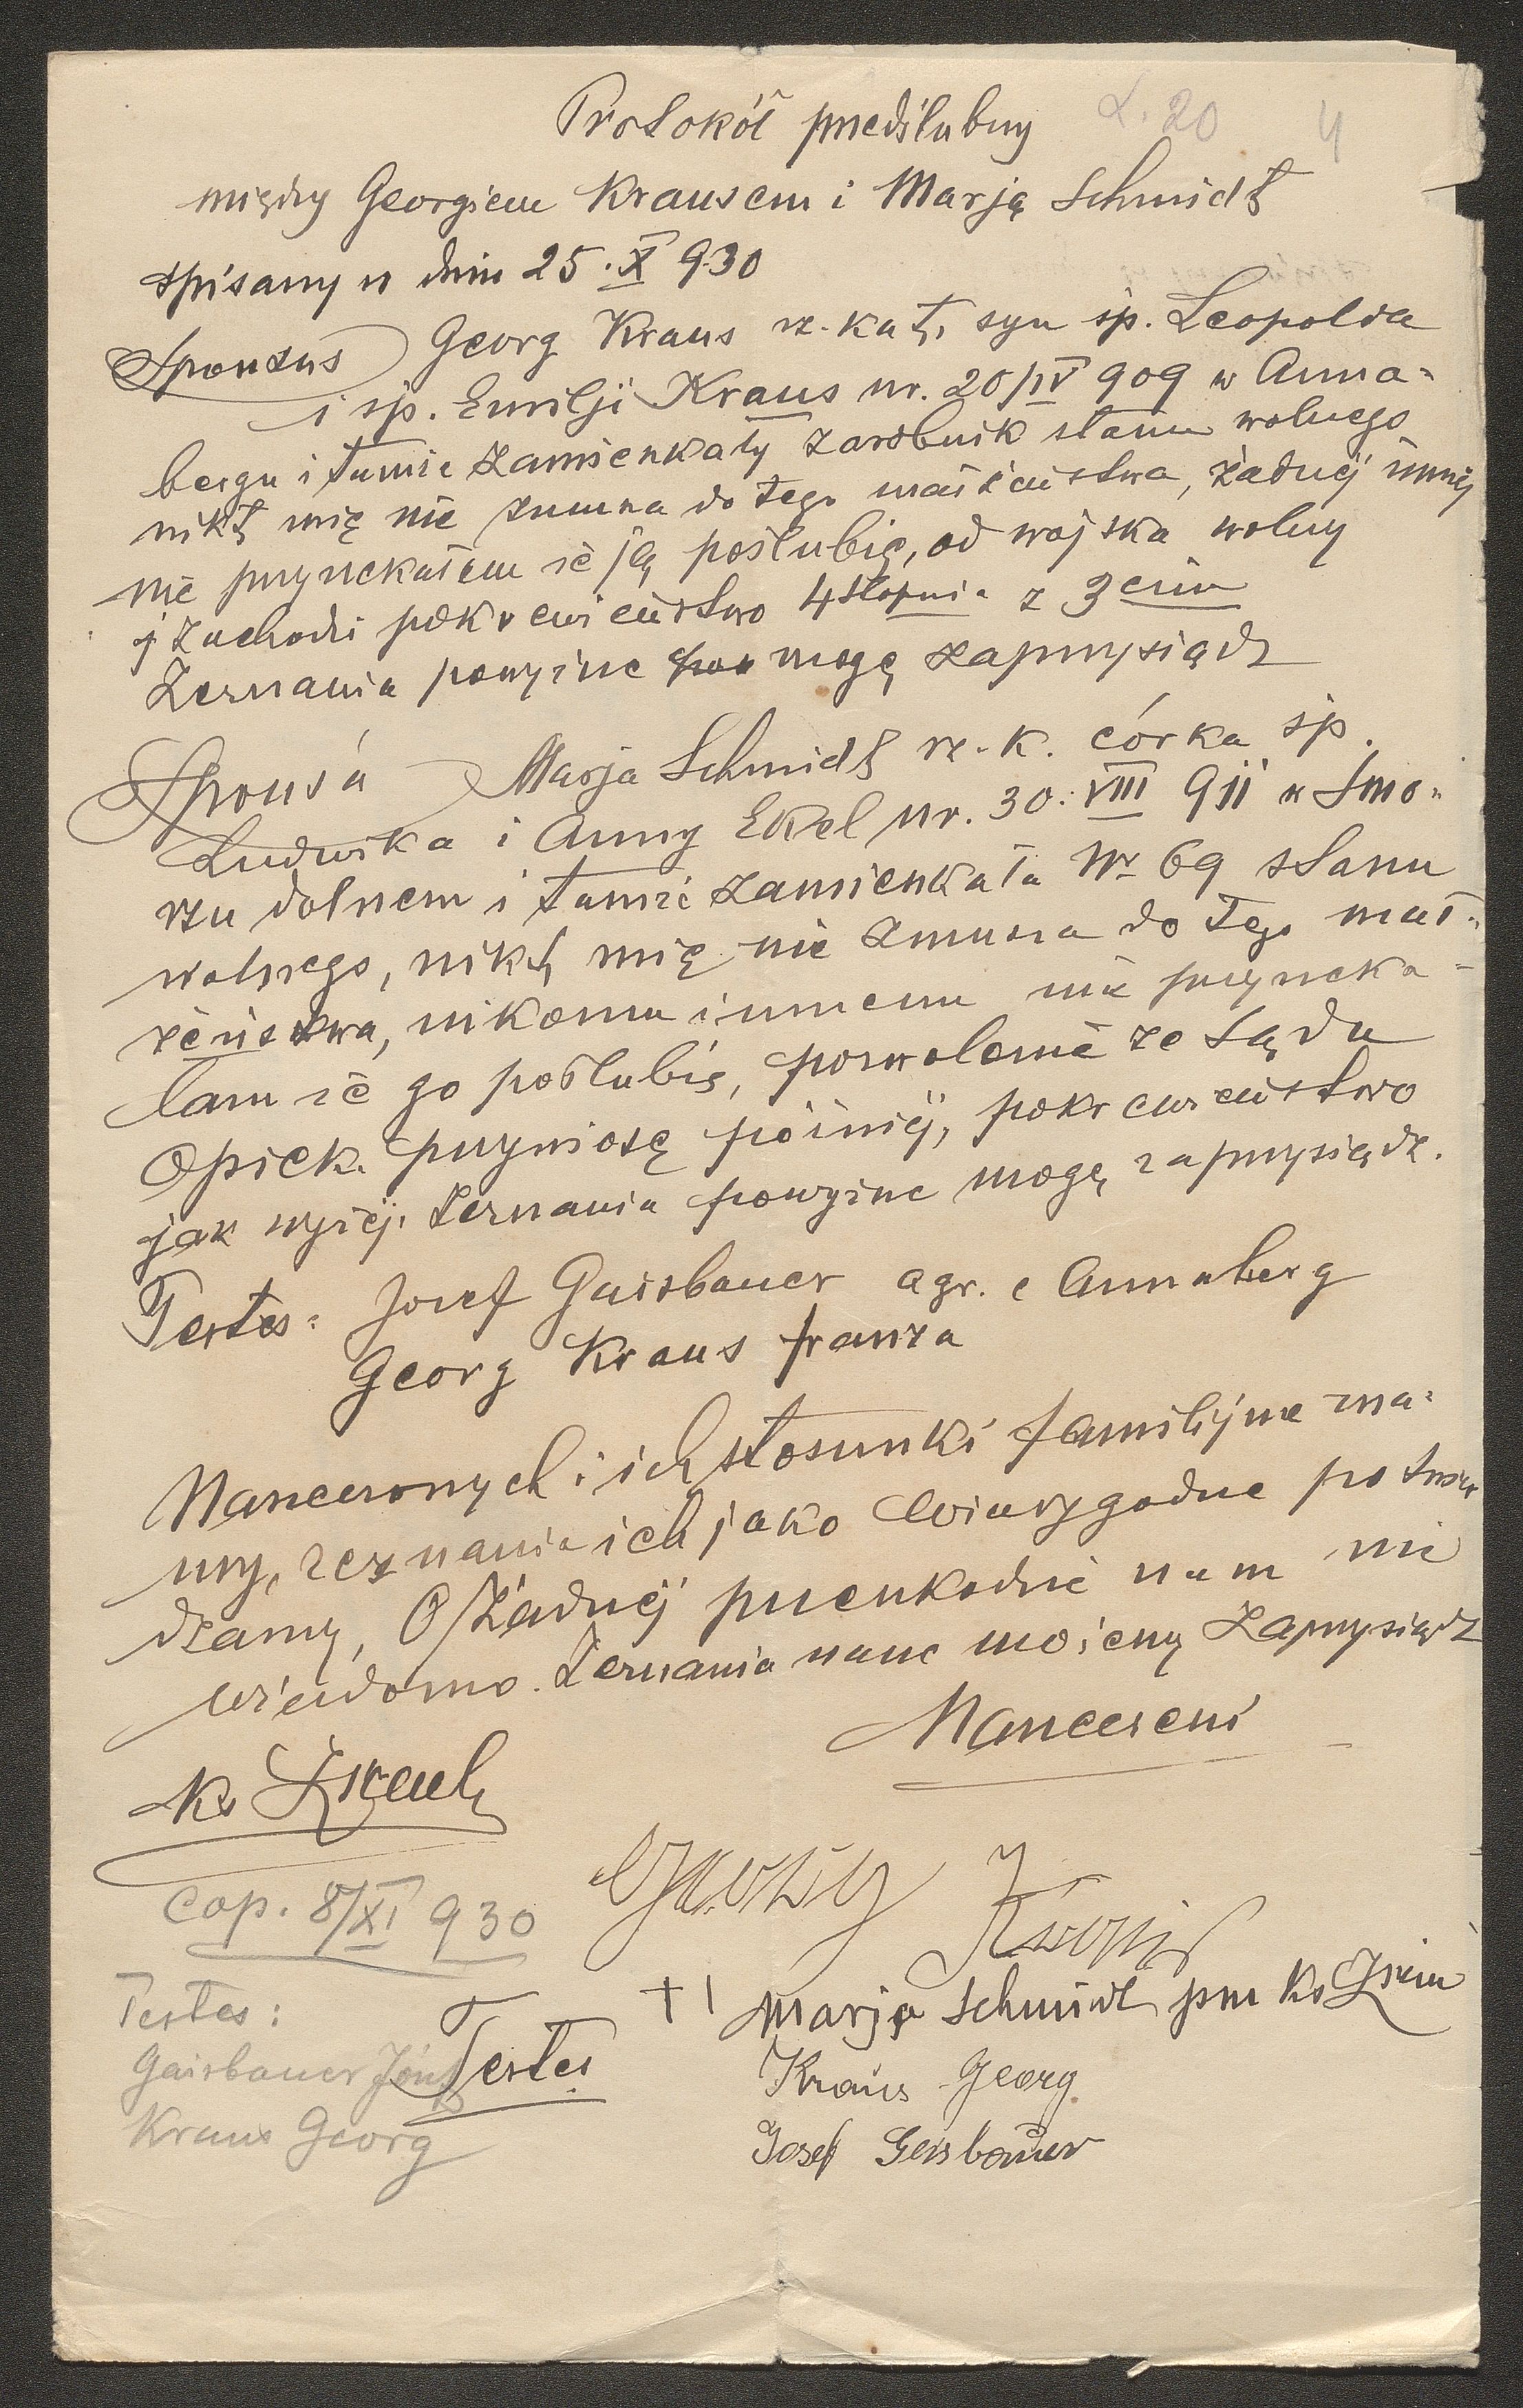 Protokół przedślubny L. 20 4
między Georgiem Krausem i Marją Schmidt
spisany w dniu 25. X 930
Sponsus Georg Kraus rz. kat. syn śp. Leopolda
i śp. Emilji Kraus ur. 20/IV 909 w Anna-
bergu i tamże zamieszkały zarobnik stanu wolnego
nikt mię nie zmusza do tego małżeństwa, żadnej innej
nie przyrzekałem że ją poślubię, od wojska wolny
zachodzi pokrewieństwo 4 stopnia z 3cim
Zeznania powyższe mogę zaprzysiądz
Sponsa Marja Schmidt rz. k. córka śp.
Ludwika i Anny Ekel ur. 30. VIII 911 w Smo-
rzu dolnem i tamże zamieszkała Nr 69 stanu
wolnego, nikt mię nie zmusza do tego mał-
żeństwa, nikomu innemu nie przyrzeka-
łam że go poślubię, pozwolenie ze Sądu
Opiek. przyniosę później, pokrewieństwo
jak wyżej. Zeznania powyższe mogę zaprzysiądz.
Testes: Josef Gaisbauer agr. e Annaberg
Georg Kraus Franza
Narzeczonych i ich stosunki familijne zna-
my, zeznania ich jako wiarygodne potwier
dzamy, O żadnej przeszkodzie nam nie
wiadomo. Zeznania nasze możemy zaprzysiądz
Narzeczeni
Ks
cop. 8/XI 930
Georg Kraus
+ Marja Schmidt prze Ks
Testes:
Gaisbauer Józef
Kraus Georg
Testes
Kraus Georg
Josef Geisbauer